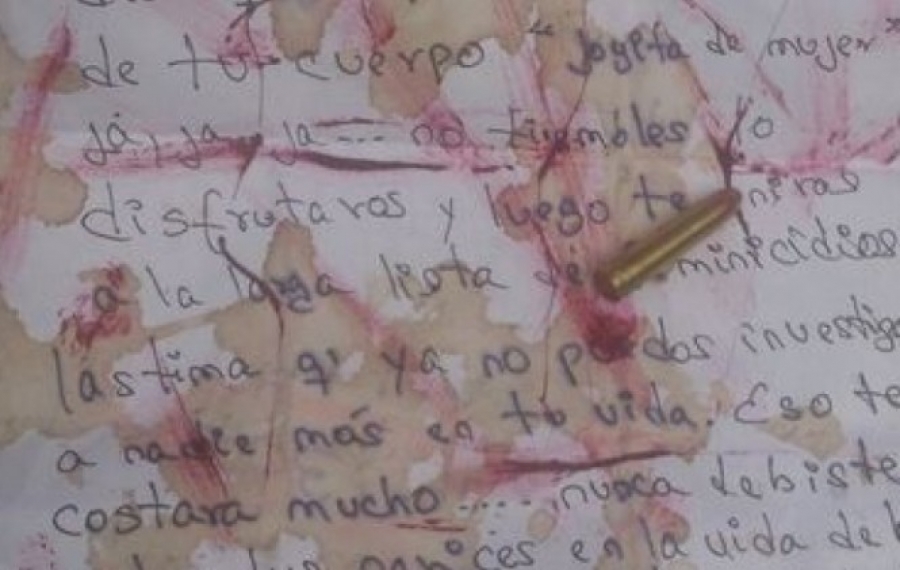 de tu cuerpo " Joyita de mujer"
já, ja ja --- no tiembles yo
disfrutaras y luego te niras
a la larga lista de minicidios
lastima q' ya no puedas investiga
a nadie más en tu vida. Eso te
costara mucho ...... nunca debiste
narices en la vida de